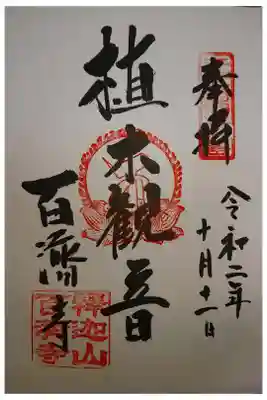 奉拝
令和二年
十月十一日
植木觀音
百済寺
釋迦山
百濟寺